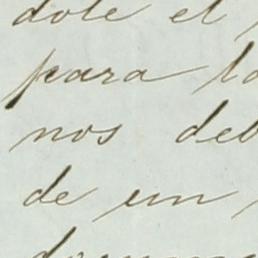 dole el
para lo
nos deb
de un